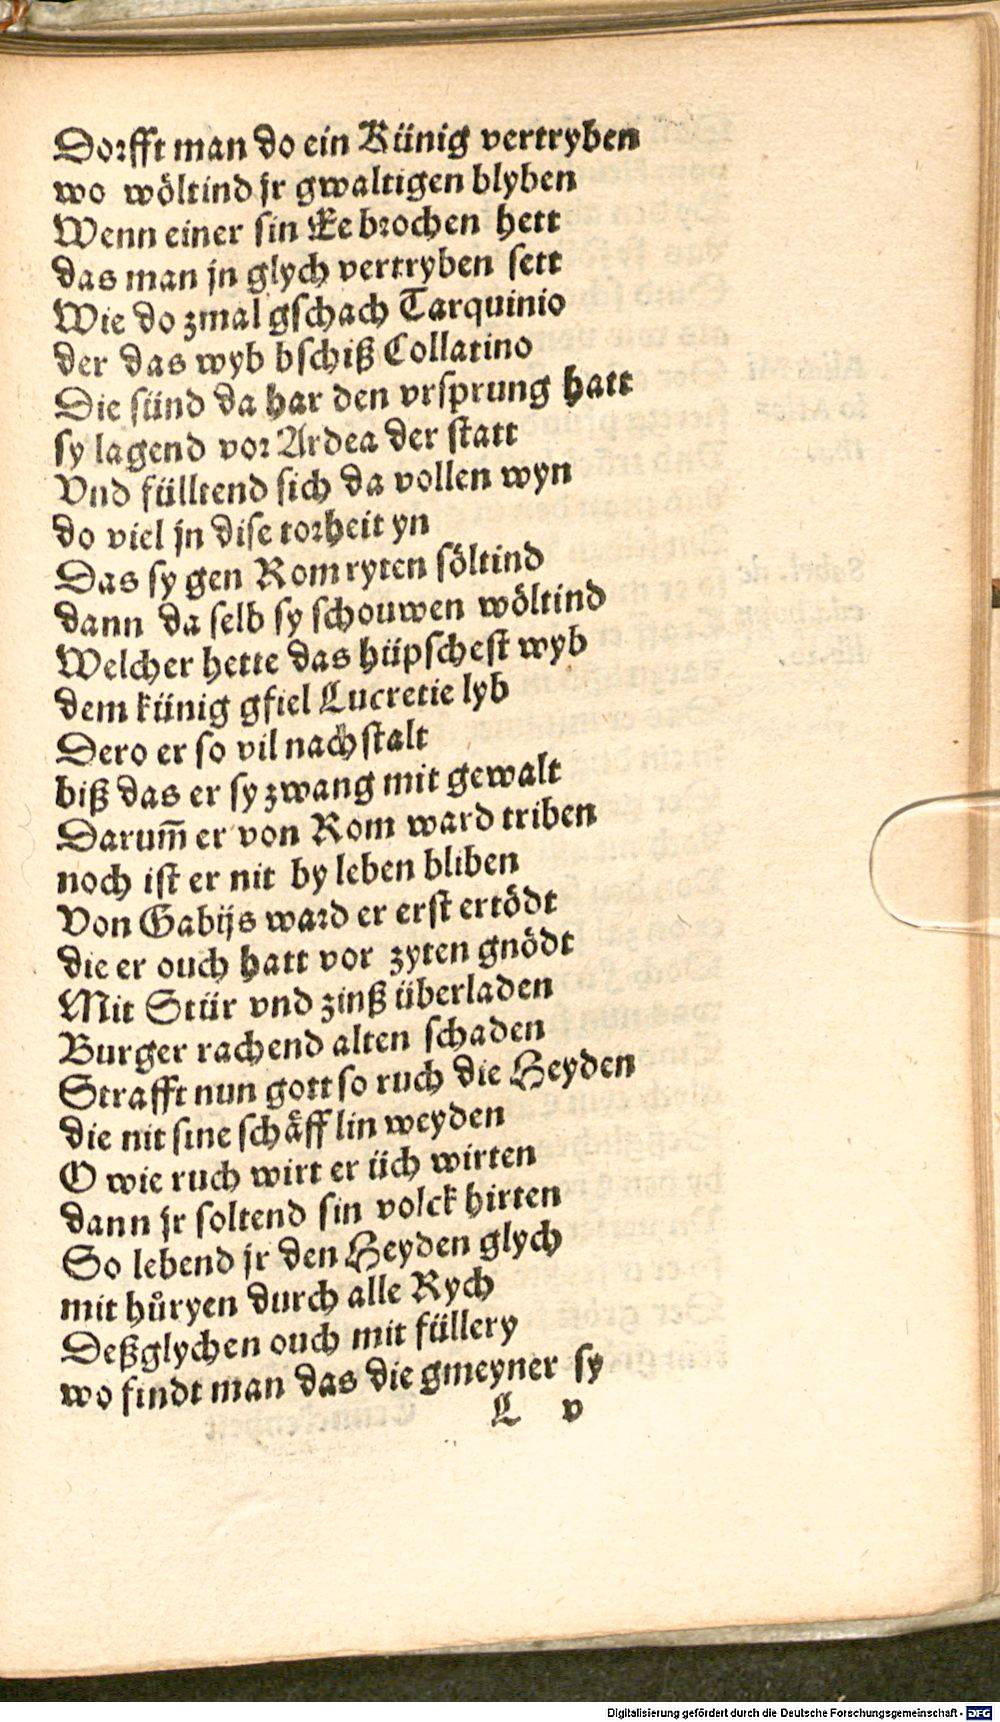 Dorfft man do ein Künig vertryben
wo wöltind jr gwaltigen blyben
Wenn einer sin Ee brochen hett
das man jn glych vertryben sett
Wie do zmal gschach Tarquinio
der das wyb bschiß Collatino
Die sünd da har den vrsprung hatt
sy lagend vor Ardea der statt
Vnd fülltend sich da vollen wyn
do viel jn dise torheit yn
Das sy gen Rom ryten söltind
dann da selb sy schouwen wöltind
Welcher hette das hüpschest wyb
dem künig gfiel Lucretie lyb
Dero er so vil nachstalt
biß das er sy zwang mit gewalt
Darum̅ er von Rom ward triben
noch ist er nit by leben bliben
Von Gabijs ward er erst ertödt
die er ouch hatt vor zyten gnödt
Mit Stür vnd zinß überladen
Burger rachend alten schaden
Strafft nun gott so ruch die Heyden
die nit sine schäfflin weyden
O wie ruch wirt er üch wirten
dann jr soltend sin volck hirten
So lebend jr den Heyden glych
mit hůryen durch alle Rych
Deßglychen ouch mit füllery
wo findt man das die gmeyner sy
L v
Digitalisierung gefördert durch die Deutsche Forschungsgemeinschaft - DFG